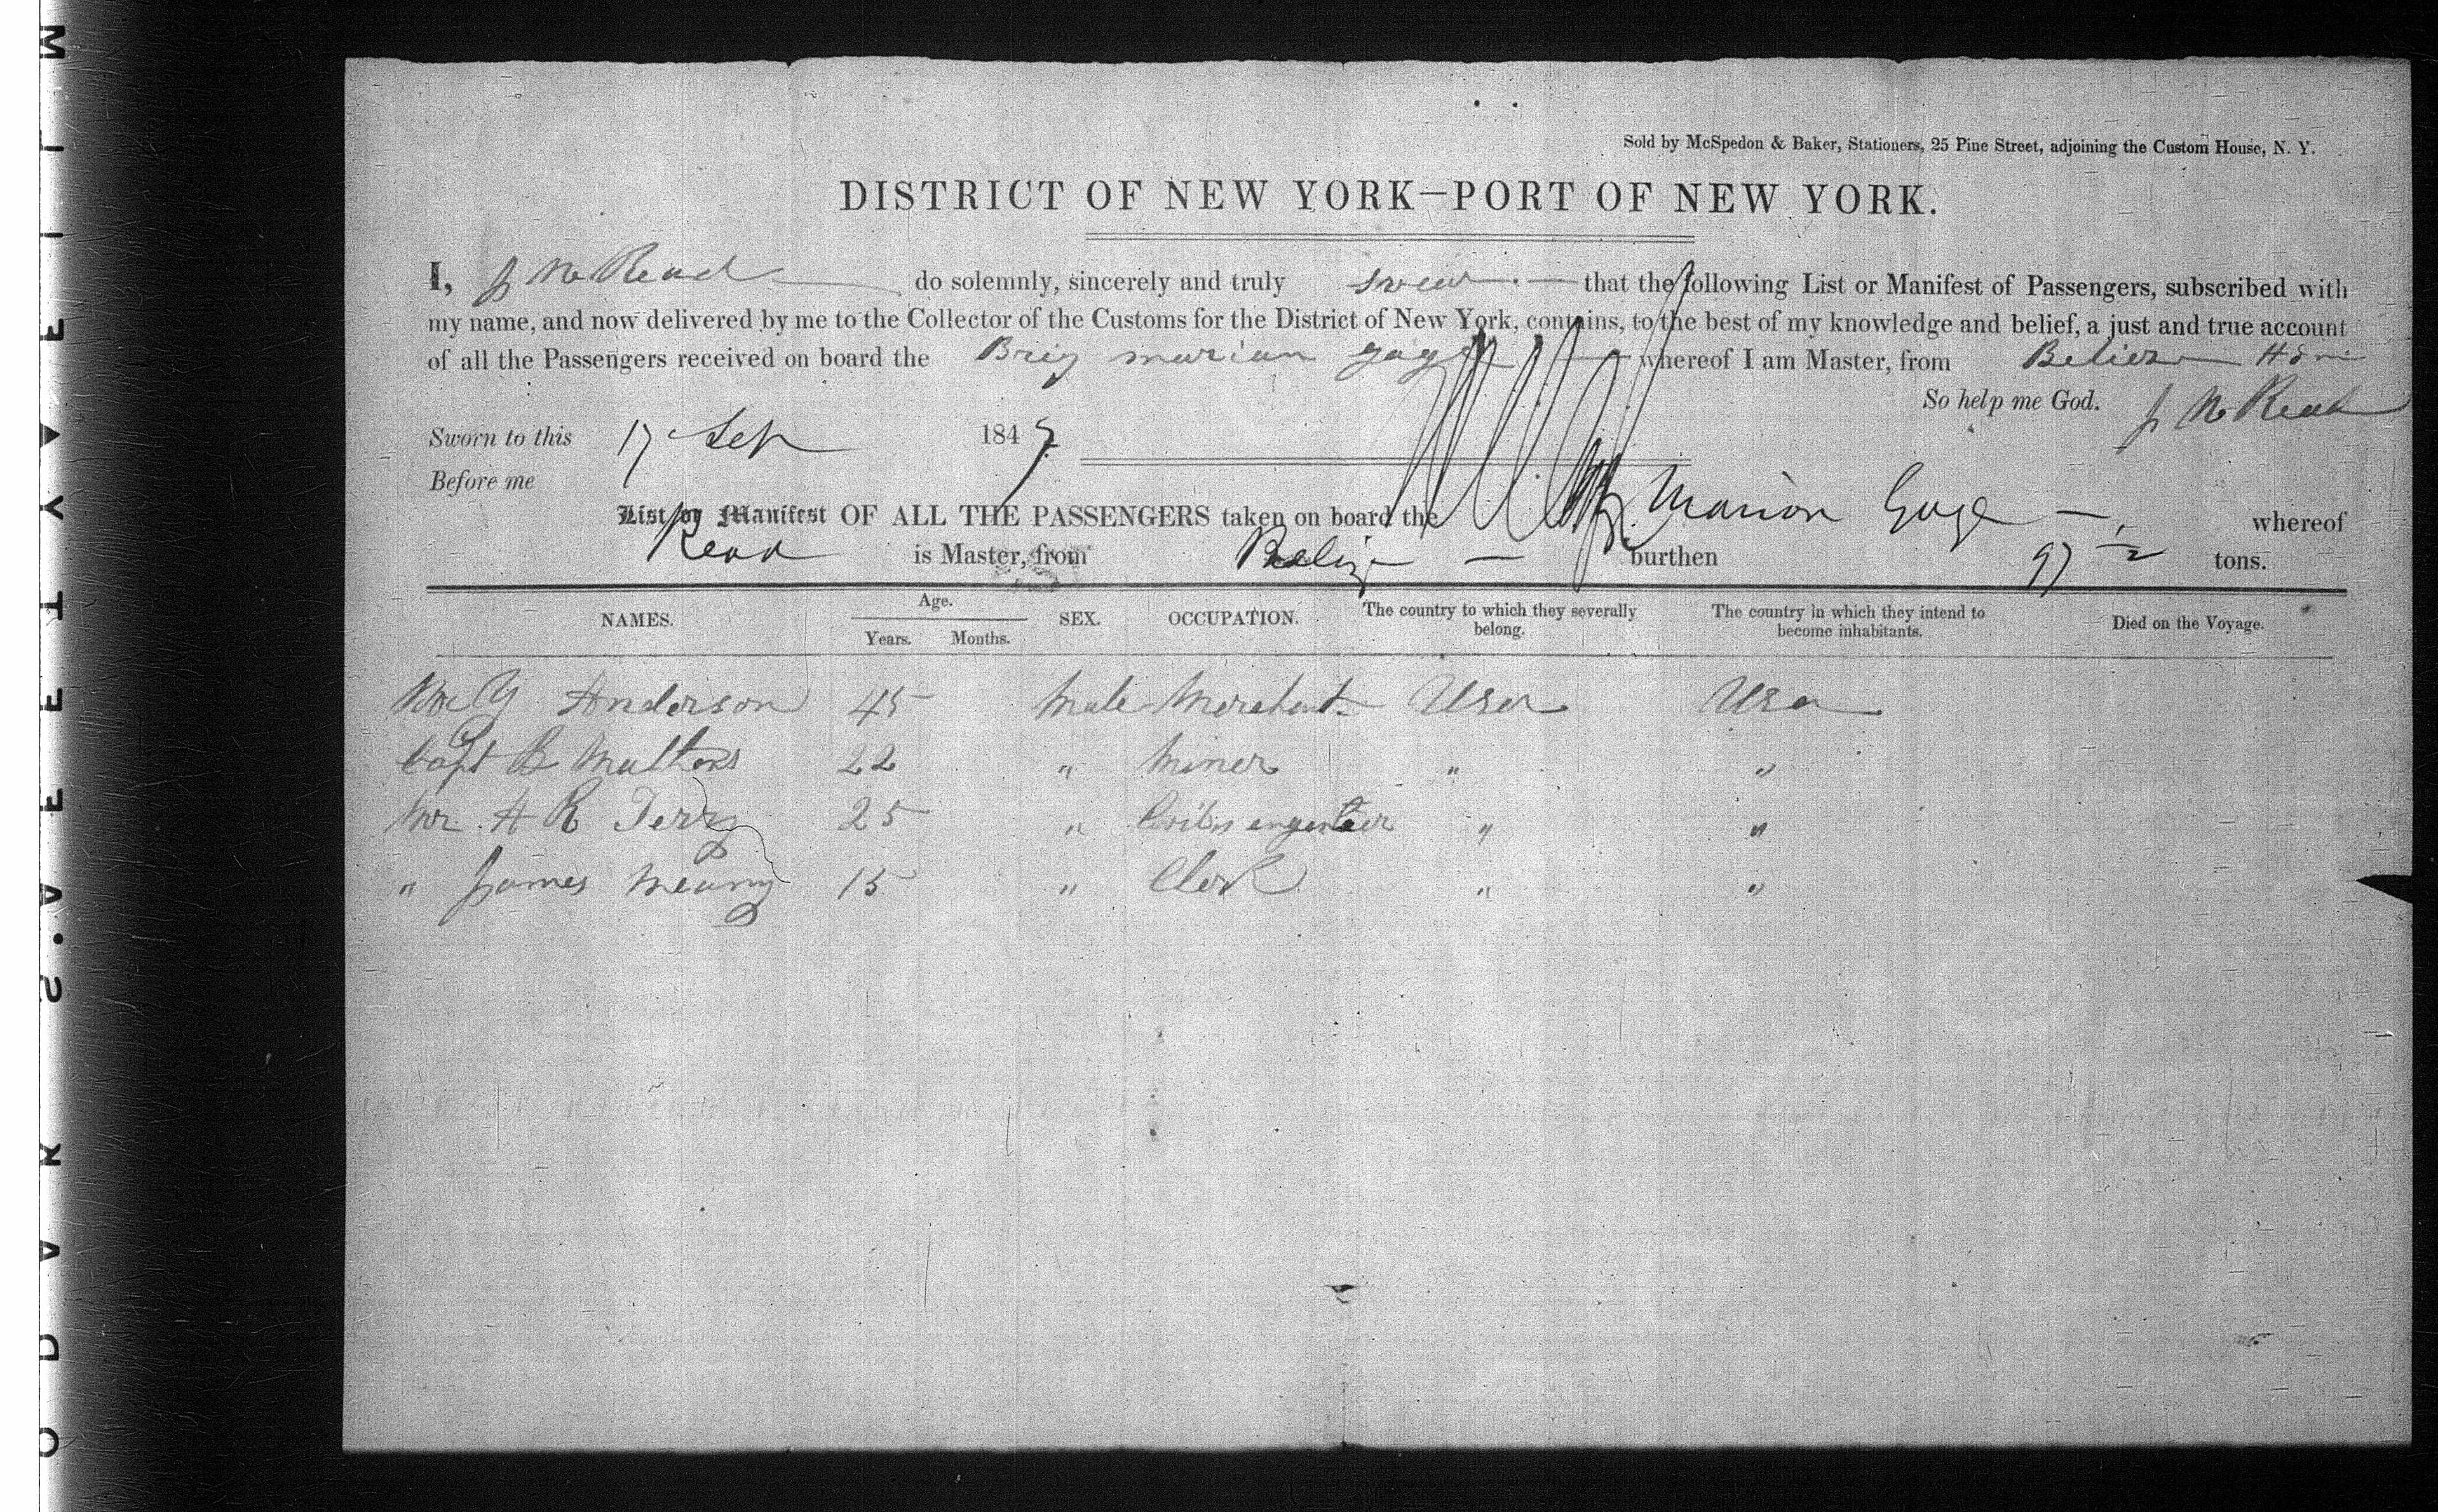 Sold by McSpedon & Baker, Stationers, 25 Pine Street, adjoining the Custom House, N. Y.
DISTRICT OF NEW YORK—PORT OF NEW YORK.
I, J M Read do solemnly, sincerely and truly swear that the following List or Manifest of Passengers, subscribed with
my name, and now delivered by me to the Collector of the Customs for the District of New York, contains, to the best of my knowledge and belief, a just and true account
of all the Passengers received on board the Brig marian gage whereof I am Master, from
So help me God. J M Read
Sworn to this 17 Sep 1847
Before me
List or Manifest OF ALL THE PASSENGERS taken on board the Marion Gage whereof
Read is Master, from Belize burthen 97 1/2 tons.
NAMES. Age. SEX. OCCUPATION. The country to which they severally belong. The country in which they intend to become inhabitants. Died on the Voyage.
Years. Months.
Anderson 45 Male Merchant Usa Usa
Capt B 22 " Miner " "
Mr. A R Terry 25 " " "
" James 15 " Clerk " "